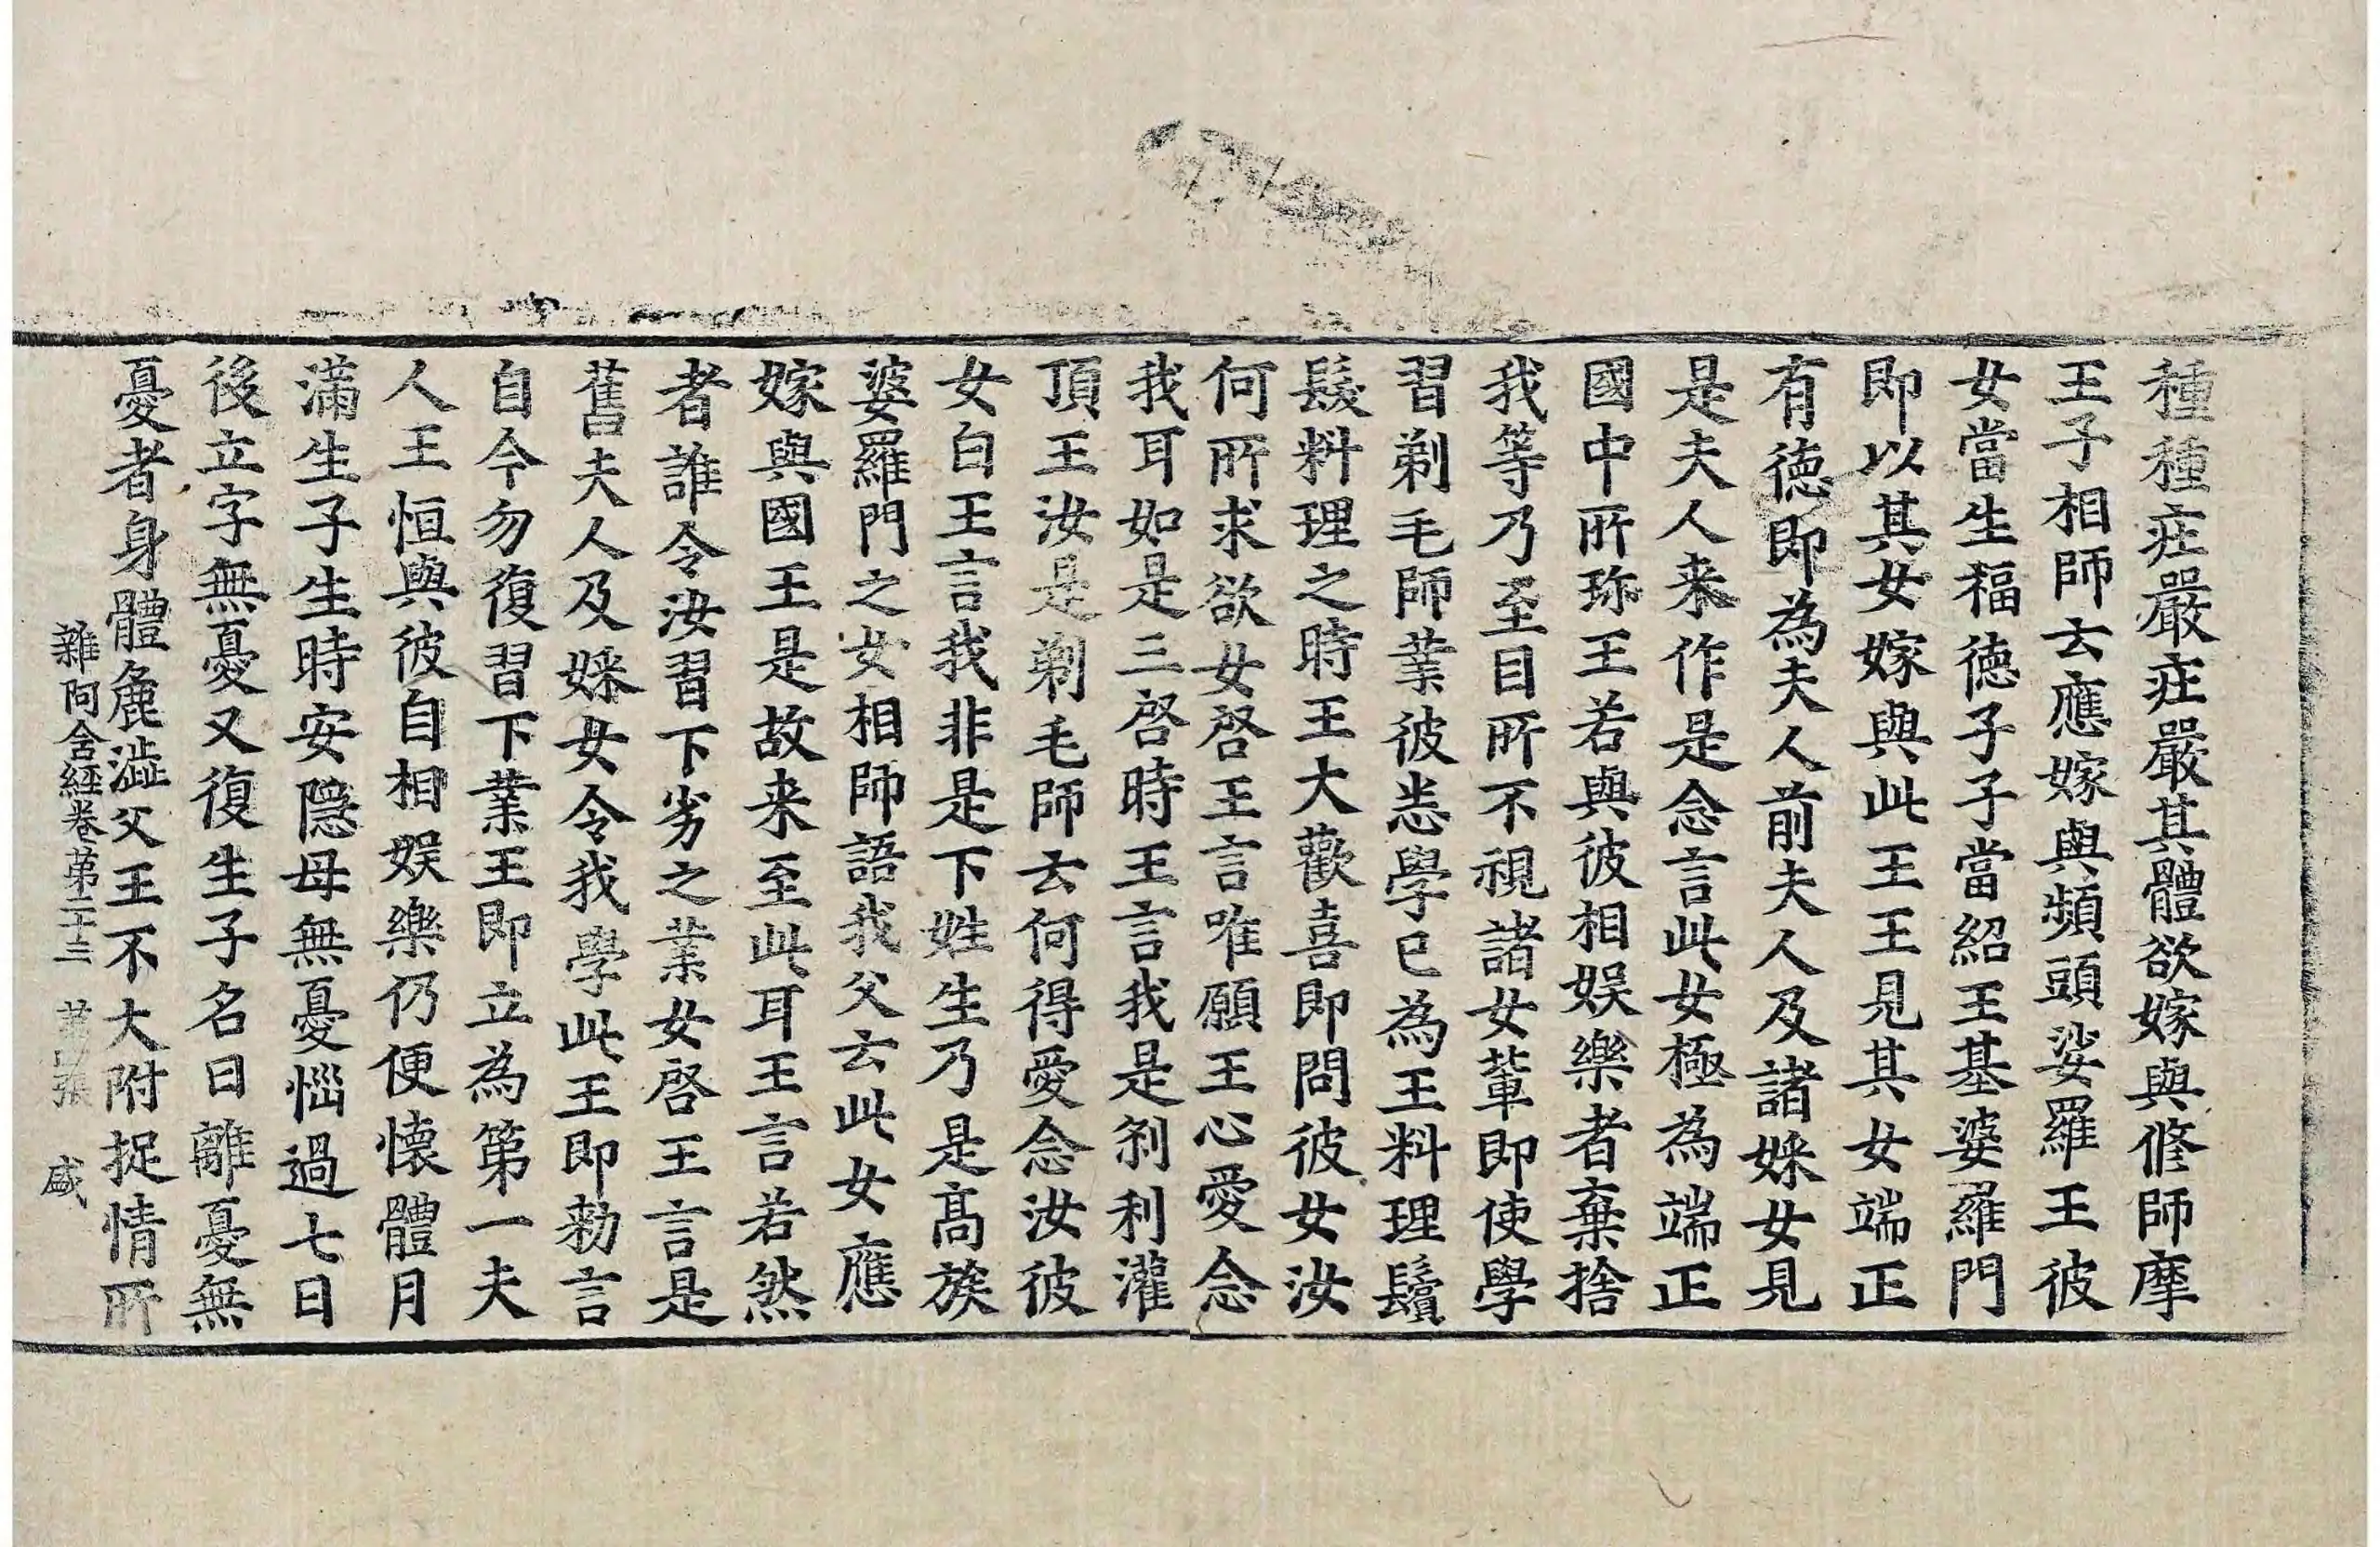 種種庄嚴庄嚴其體欲嫁與修師摩
王子相師去應嫁與頻頭娑羅王彼
女當生福德子子當紹王基婆羅門
即以其女嫁與此王王見其女端正
有德即為夫人前夫人及諸婇女見
是夫人来作是念言此女極為端正
國中所珎王若與彼相娛樂者棄捨
我等乃至目所不視諸女軰即使學
習剃毛師業彼悉學已為王料理鬚
髮料理之時王大歡喜即問彼女汝
何所求欲女啓王言唯願王心愛念
我耳如是三啓時王言我是刹利灌
頂王汝是剃毛師云何得愛念汝彼
女白王言我非是下姓生乃是髙族
婆羅門之女相師語我父云此女應
嫁與國王是故来至此耳王言若然
者誰令汝習下劣之業女啓王言是
舊夫人及婇女令我學此王即勑言
自今勿復習下業王即立為第一夫
人王恒與彼自相娛樂仍便懷體月
滿生子生時安隱母無憂惱過七日
後立字無憂又復生子名曰離憂無
憂者身體麁澁父王不大附捉情所
雜阿含經卷第二十三 第 張 盛